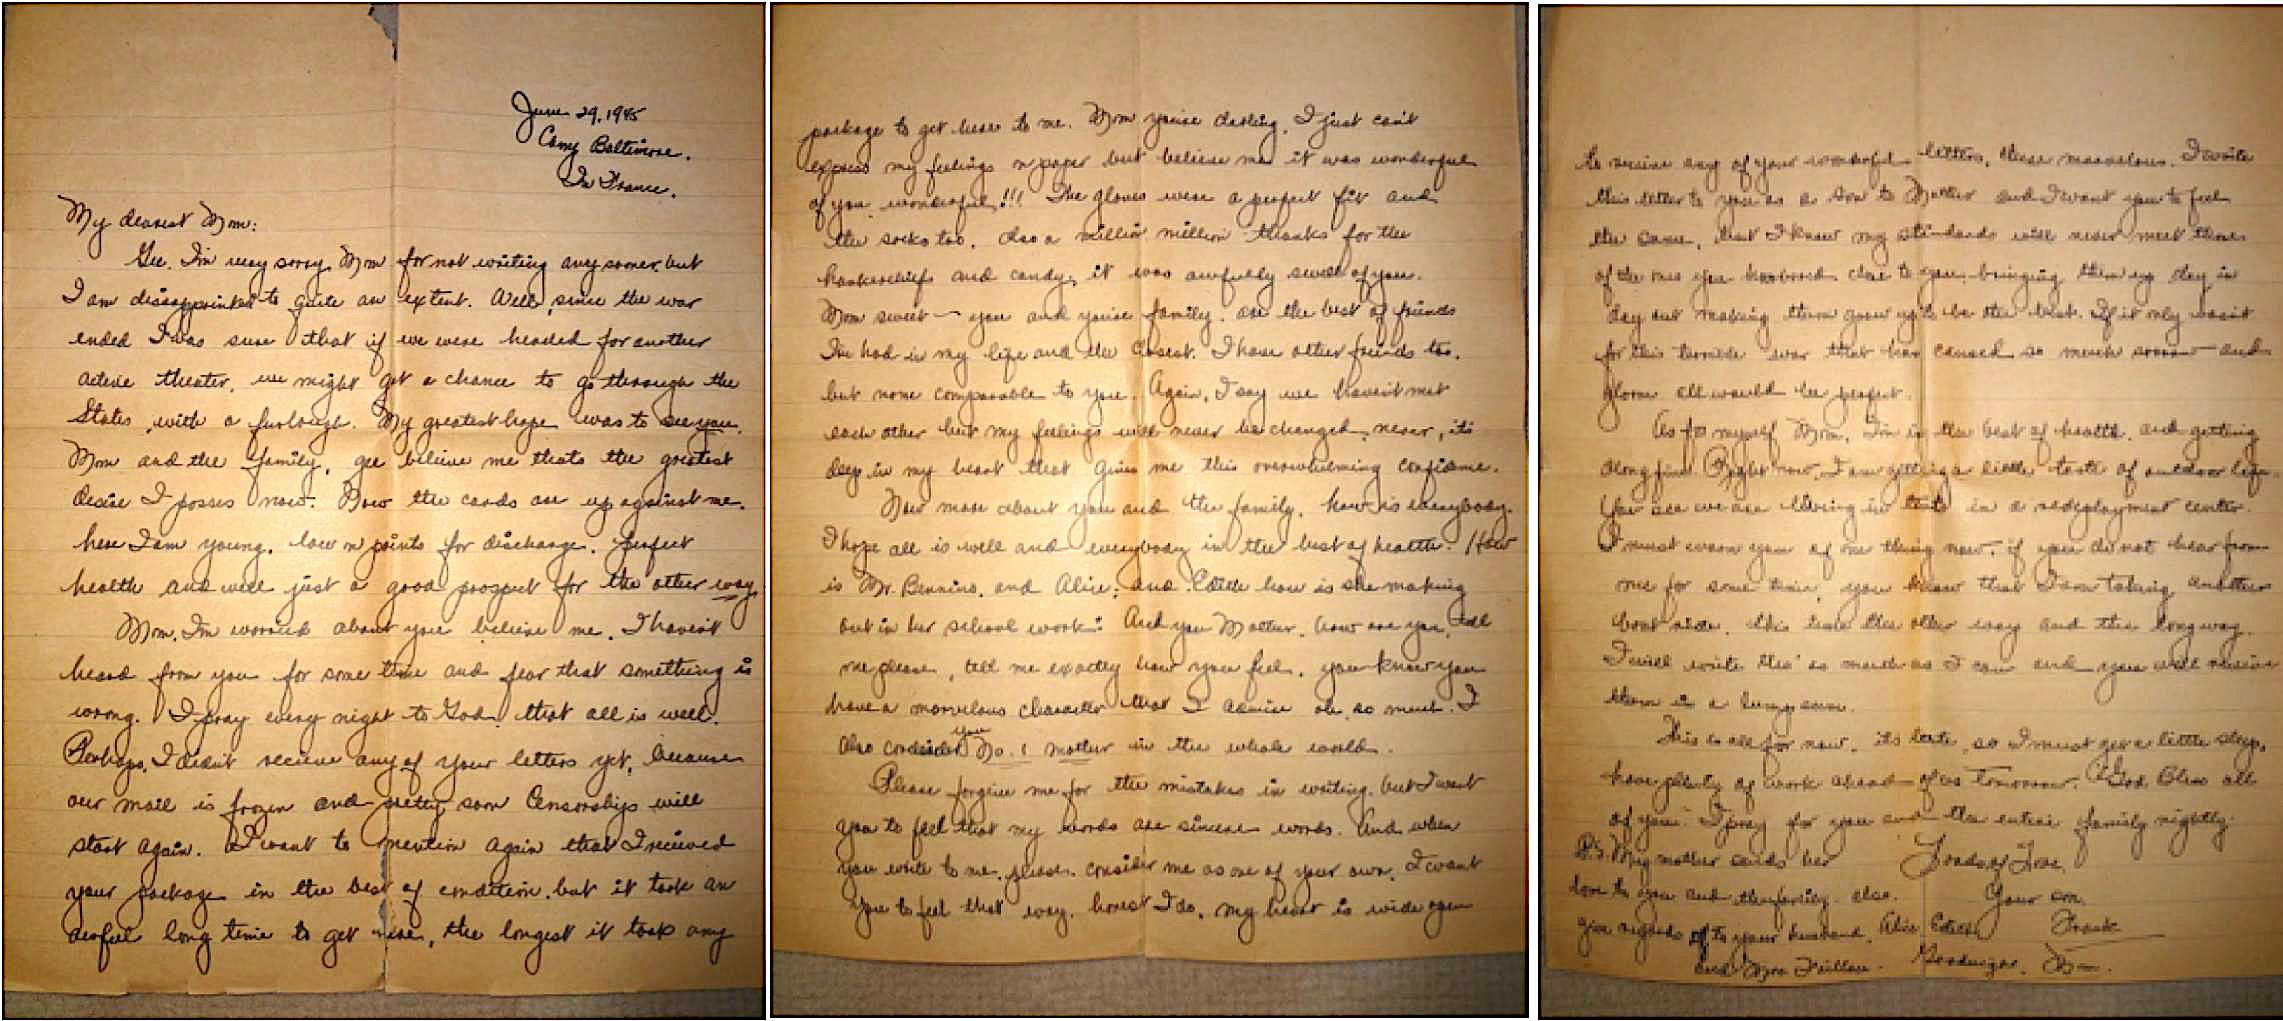 June 29, 1945
Camp Baltimore.
In France.
My dearest Mom:
Gee. I'm very sorry Mom for not writing any sooner, but
I am disappointed to quite an extent. Well, since the war
ended I was sure that if we were headed for another
active theater, we might get a chance to go through the
States, with a furlough. My greatest hope was to see you,
Mom and the family, gee believe me thats the greatest
desire I posses now. Now the cards are up against me.
here I am young, low on points for discharge, perfect
health and well just a good prospect for the other way.
Mom, I'm worried about you believe me. I haven't
heard from you for some time and fear that something is
wrong. I pray every night to God, that all is well.
Perhaps, I didn't recieve any of your letters yet, because
our mail is frozen and pretty soon Censorship will
start again. I want to mention again that I recieved
your package in the best of condition, but it took an
awful long time to get here, the longest it took any
package to get here to me. Mom you're darling, I just can't
express my feelings on paper but believe me it was wonderful
of you, wonderful!!! The gloves were a perfect fit and
the socks too. Also a million million thanks for the
hankerchiefs and candy, it was awfully swell of you.
Mom sweet — you and you're family, are the best of friends
I've had in my life and the closest. I have other friends too,
but none comparable to you. Again, I say we haven't met
each other but my feelings will never be changed, never, it's
deep in my heart that gives me this overwhelming
Now more about you and the family, how is everybody.
I hope all is well and everybody in the best of health. How
is Mr. and Alice, and Edith how is she making
out in her school work? And you Mother, how are you, tell
me please, tell me exactly how you feel, you know you
have a marvelous character that I admire oh, so much. I
also consider you No. 1 mother in the whole world.
Please forgive me for the mistakes in writing, but I want
you to feel that my words are sincere words. And when
you write to me, please, consider me as one of your own, I want
you to feel that way, honest I do, my heart is wide open
to recieve any of your wonderful letters, these marvelous. I write
this letter to you as a Son to Mother and I want you to feel
the same, but I know my standards will never meet those
of the ones you close to you, bringing them up day in
day out making them grow up to be the best. If it only wasn't
for this terrible war that has caused so much sorrow and
gloom all would be perfect.
As for myself Mom, I'm in the best of health, and getting
along fine. Right now, I am getting a little taste of outdoor life.
You see we are living in tents in a redeployment center.
I must warn you of one thing now, if you do not hear from
me for some time, you know that I am taking another
boat ride, this time the other way and the long way.
I will write tho' as much as I can and you will recieve
them in a
This is all for now, its late, so I must get a little sleep,
have plenty of work ahead of us Tomorrow. God Bless all
of you. I pray for you and the entire family nightly.
Loads of Love,
Your son,
Frank
P.S. My mother sends her
love to you and the family also.
give regards to your husband, Alice, Edith,
and Mrs
Goodnight, Mom.